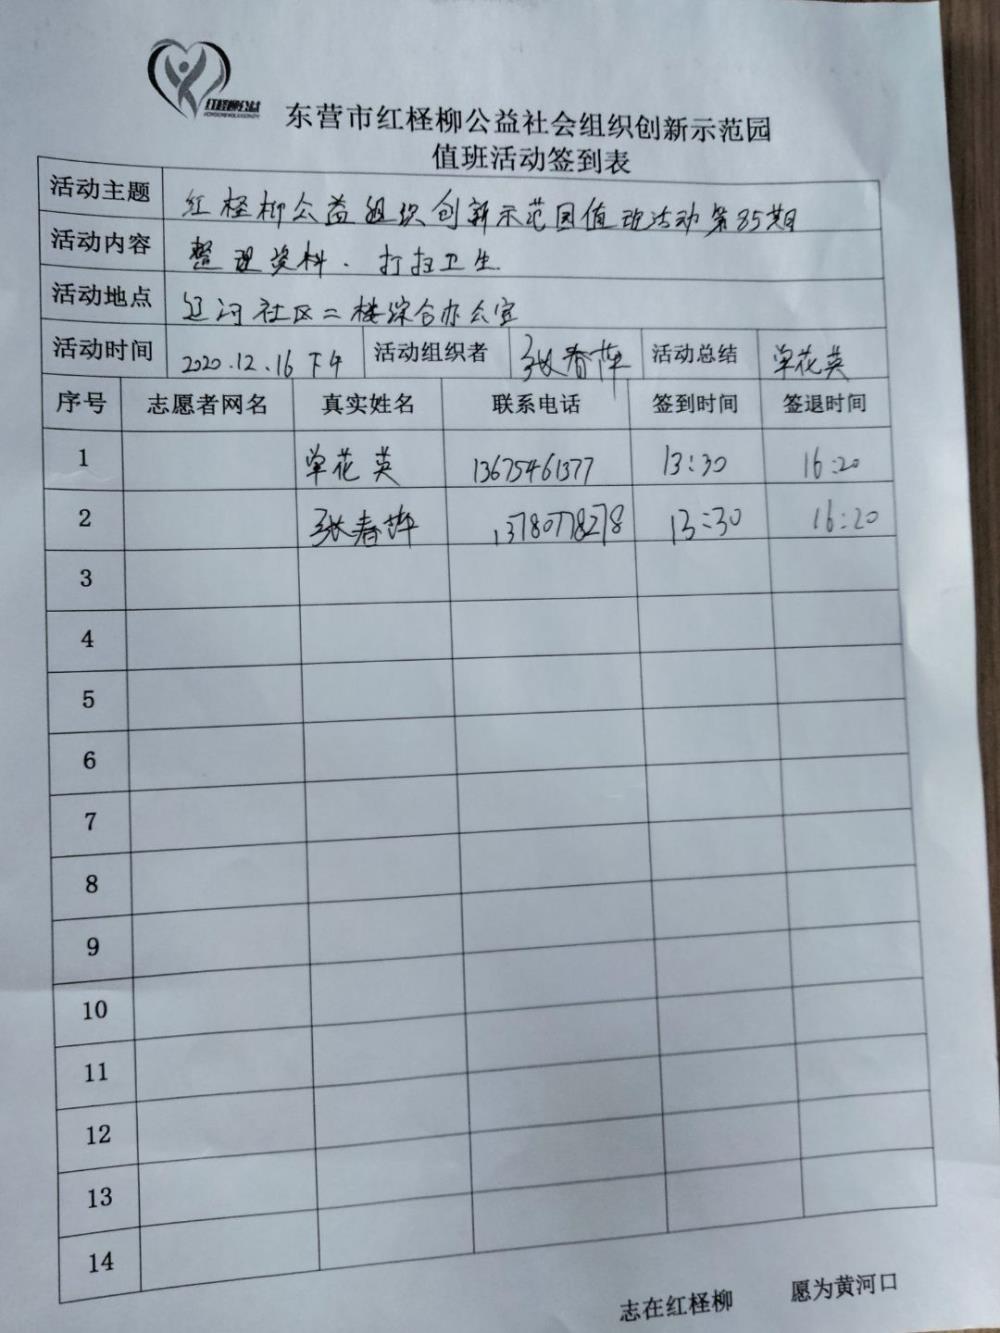 红柽柳公益
东营市红柽柳公益社会组织创新示范园
值班活动签到表
活动主题 红柽柳公益组织创新示范园值班活动第85期
活动内容 整理资料、打扫卫生
活动地点 辽河社区二楼综合办公室
活动时间 2020.12.16下午 活动组织者 张春萍 活动总结 单花英
序号 志愿者网名 真实姓名 联系电话 签到时间 签退时间
1 单花英 13675461377 13:30 16:20
2 张春萍 13780778278 13:30 16:20
3
4
5
6
7
8
9
10
11
12
13
14
志在红柽柳 愿为黄河口